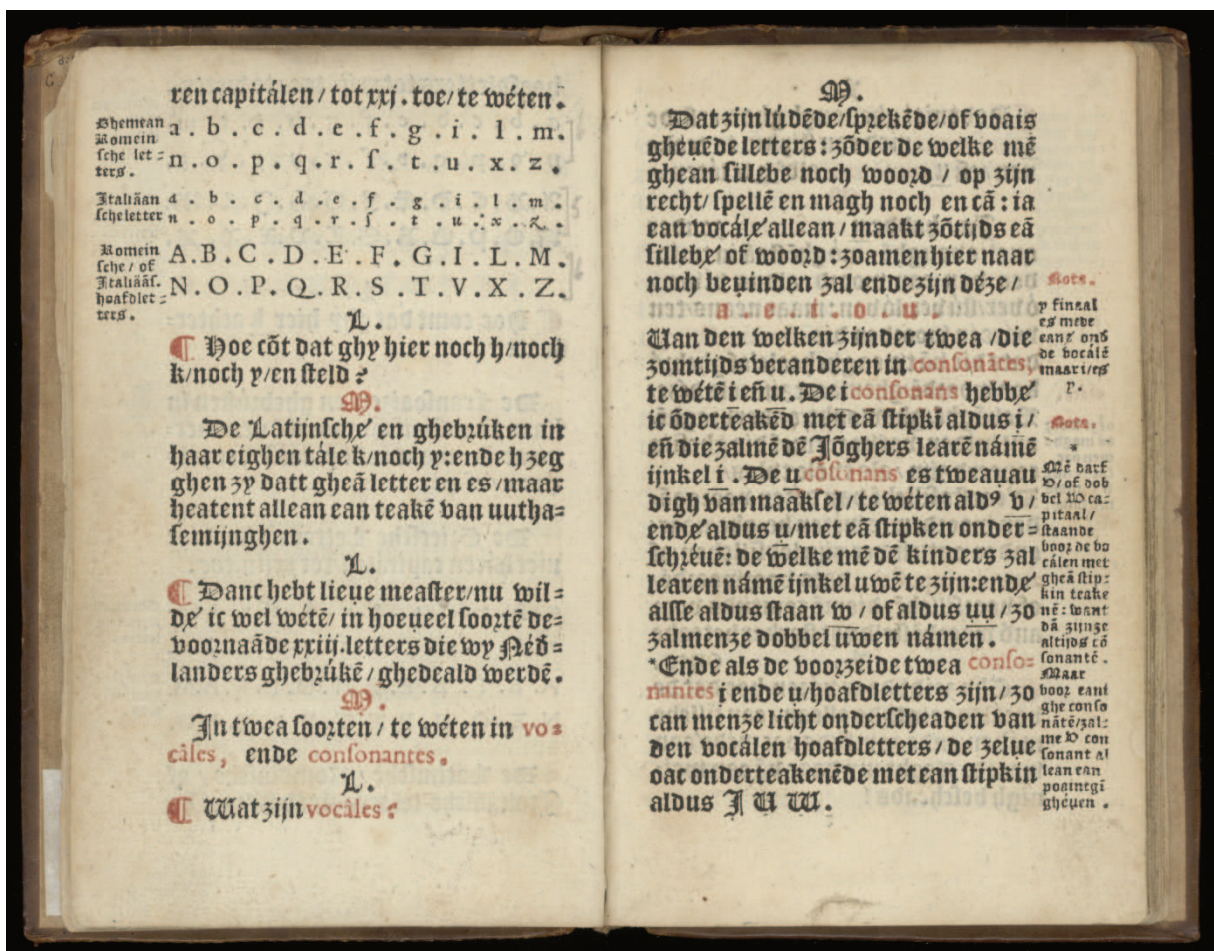 ren capitálen/tot xxj. toe/te wéten.
Ghemean
Romein
sche let=
ters.
a. b. c. d. e. f. g. i. l. m.
n. o. p. q. r. ſ. t. u. x. z.
Italiãan
ſcheletter
a . b . c . d . e . f . g . i . l . m .
n . o . p . q . r . ſ . t . u . x . z .
Romein
ſche/of
Italiãaſ.
hoafdlet=
ters.
A.B.C.D.E.F.G.I.L.M.
N.O.P.Q.R.S.T.V.X.Z.
L.
¶ Hoe cõt dat ghy hier noch h/noch
k/noch y/en ſteld?
M.
De Latijnſche' en ghebrúken in
haar eighen tále k/noch y: ende h zeg
ghen zy datt gheã letter en es/maar
heatent allean ean teakẽ van uutha=
ſemijnghen.
L.
¶ Danc hebt lieue meaſter/nu wil=
de' ic wel wétẽ/ in hoeueel ſoortẽ de=
voornaãde xxiij. letters die wy Néd=
landers ghebrúkẽ/ghedeald werdẽ.
M.
In twea ſoorten/te wéten in vo=
câles, ende conſonantes.
L.
¶ Wat zijn vocâles?
M.
Dat zijn lúdẽde/ſprekẽde/of voais
gheuẽde letters: zõder de welke mẽ
ghean ſillebe noch woord / op zijn
recht/ ſpellẽ en magh noch en cã: ia
ean vocále' allean/maakt zõtijds eã
ſillebe' of woord: zoamen hier naar
noch beuinden zal ende zijn déze/
a. e. i. o. u.
Van den welken zijnder twea /die
zomtijds veranderen in conſonãtes,
te wétẽ i eñ u. De i conſonans hebbe'
ic õderteakẽd met eã ſtipkĩ aldus i/
eñ die zalmẽ dẽ Jõghers learẽ námẽ
ijnkel i. De u cõſonans es tweauau
digh van maakſel/te wéten aldꝰ v/
ende' aldus u/met eã ſtipken onder=
ſchréuẽ: de welke mẽ dẽ kinders zal
learen námẽ ijnkel uwẽ te zijn: ende'
alſſe aldus ſtaan w / of aldus uu / zo
zalmenze dobbel uwen námen.
*Ende als de voorzeide twea conſo=
nantes i ende u/hoafdletters zijn/zo
can menze licht onderſcheaden van
den vocálen hoafdletters/de zelue
oac onderteakenẽde met ean ſtipkin
aldus J U W.
Nota.
y finaal
es mede
eane' ons
de vocálẽ
maar i/es
y.
Nota.
*
Mẽ darf
W/of dob
bel W ca=
pitaal/
ſtaande
voor de vo
cálen met
gheã ſtip=
kin teake
nẽ: want
dã zijnze
altijds cõ
ſonantẽ.
Maar
voor eani
ghe conſo
nãtẽ/zal=
me W con
ſonant al
lean ean
poaintgi
ghéuen.